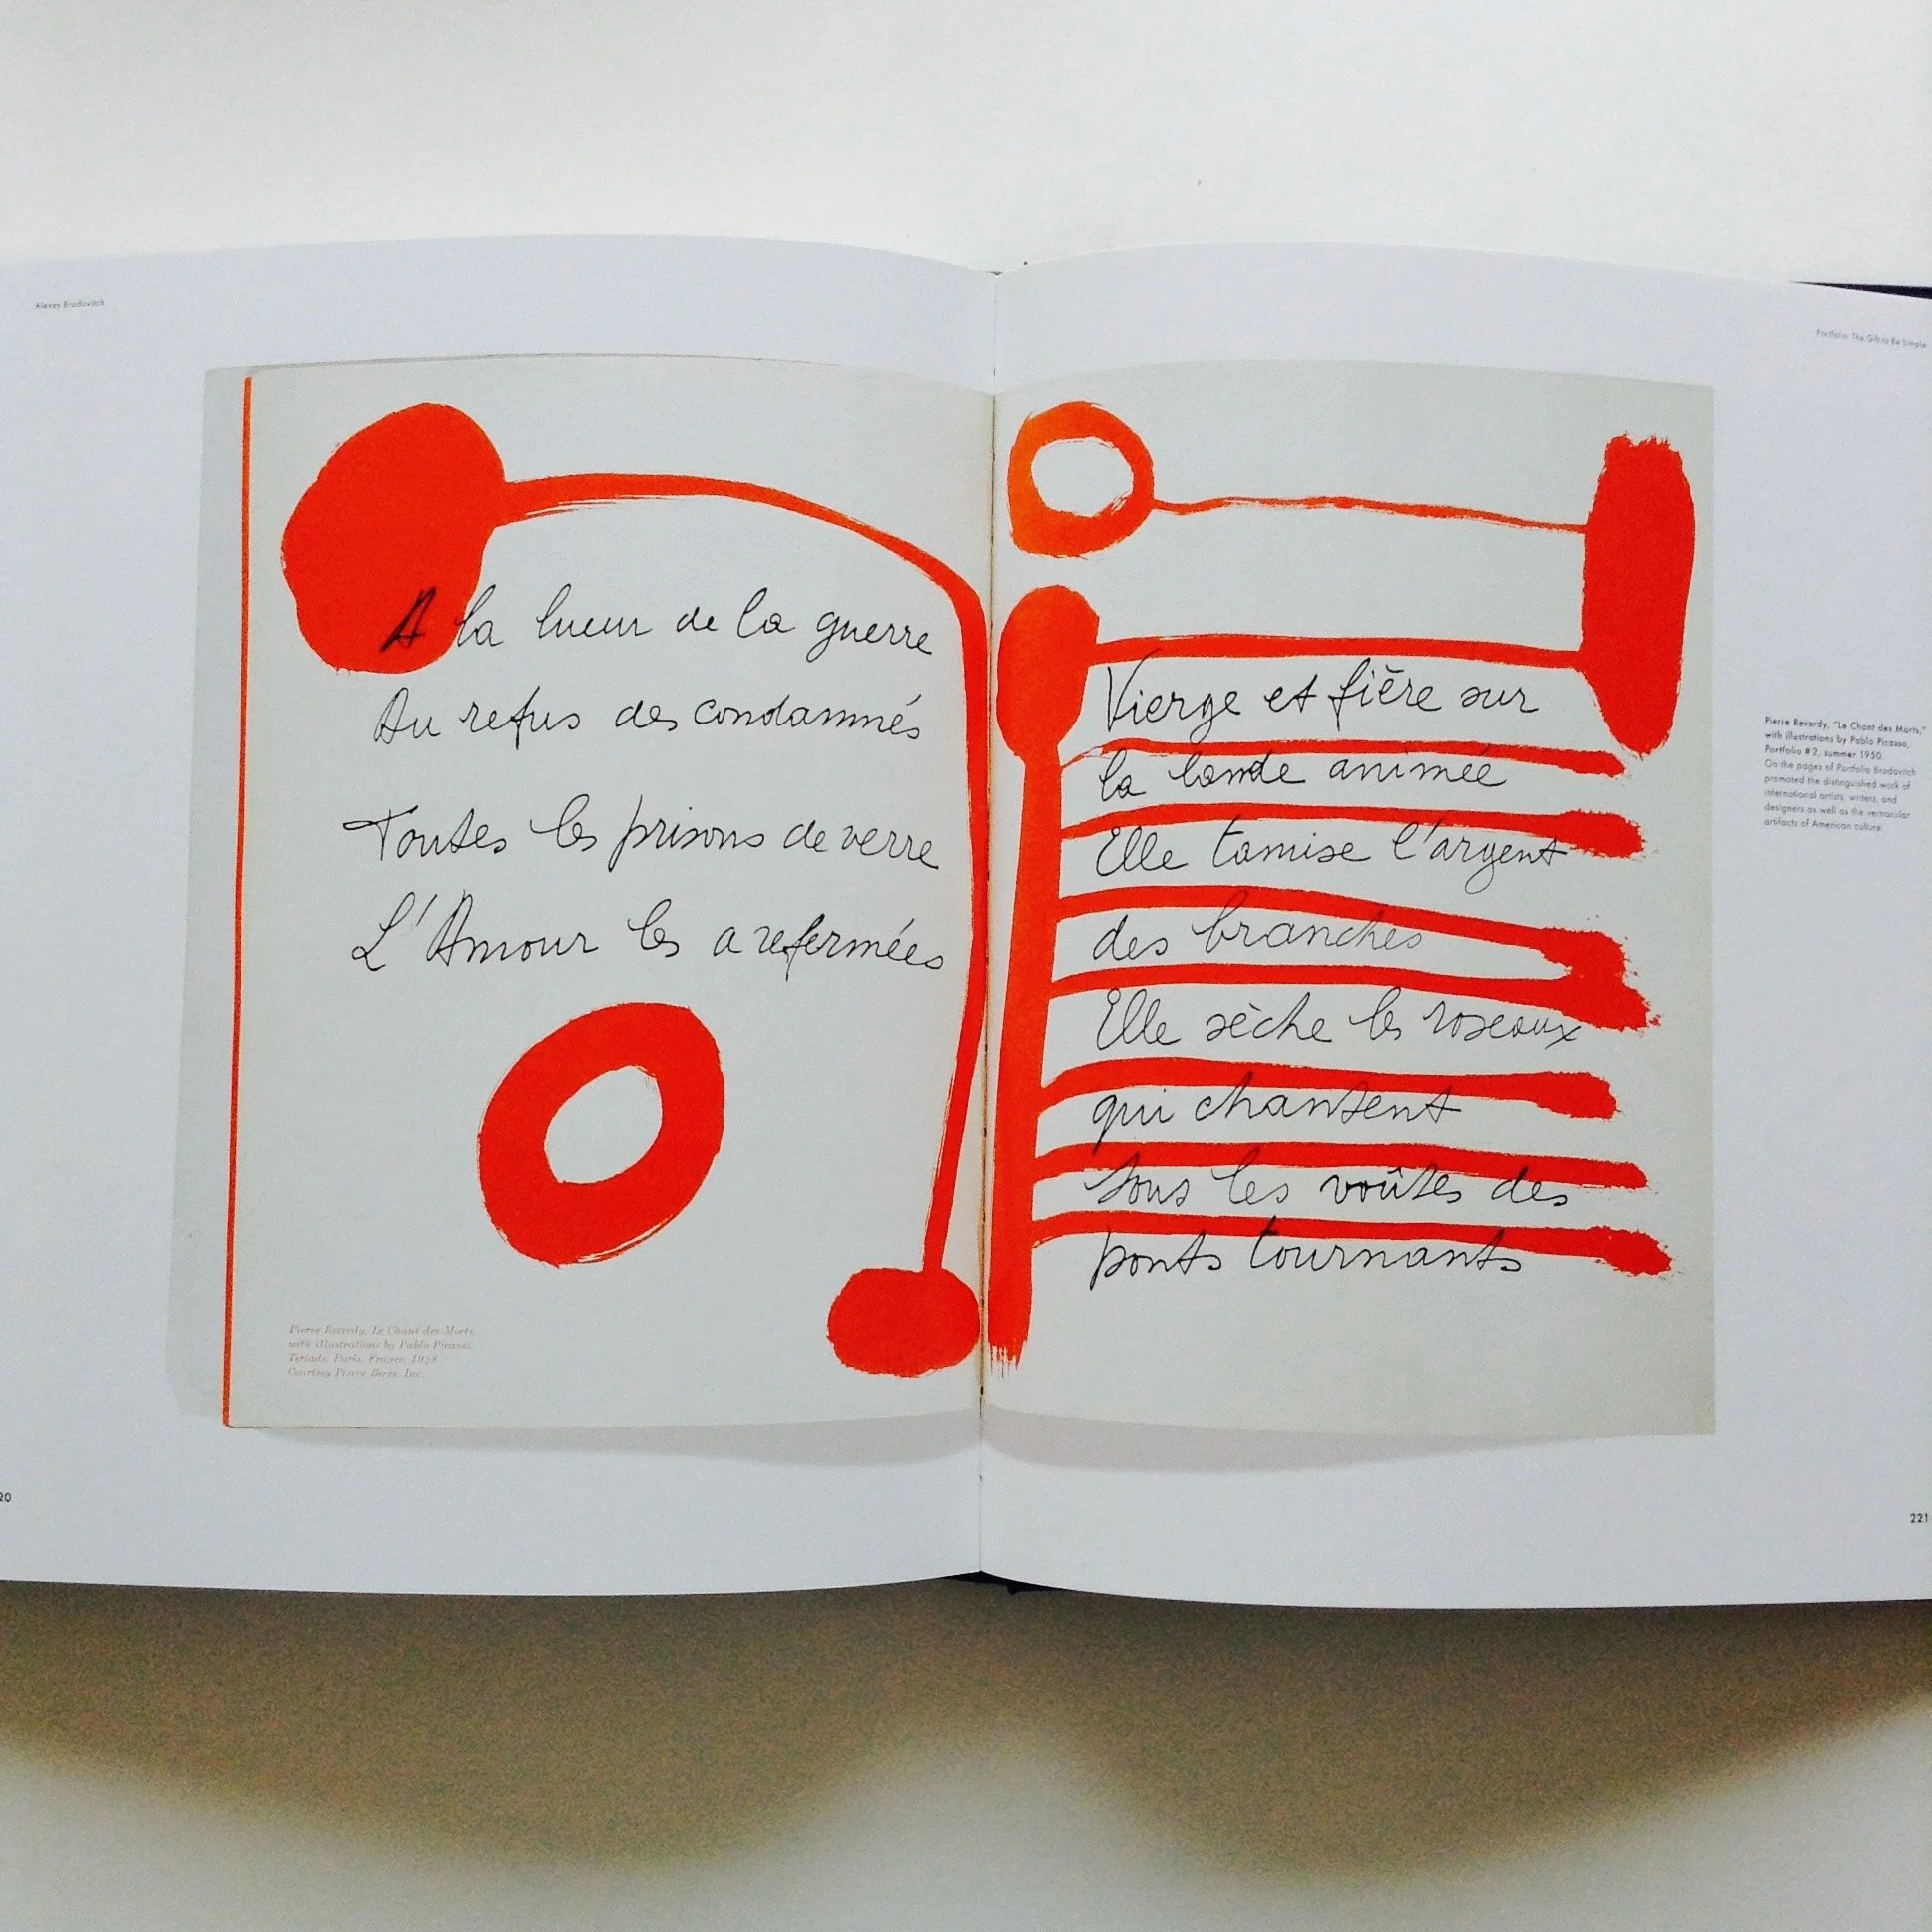 Alexey Brodovitch
Portfolio: The Gift to Be Simple
A la lueur de la guerre
Au refus des condamnés
Toutes les prisons de verre
L'Amour les a refermées
Pierre Reverdy, Le Chant des Morts,
with illustrations by Pablo Picasso,
Teriade, Paris, France, 1948
Courtesy Pierre Berès, Inc.
20
Vierge et fière sur
la bande animée
Elle tamise l'argent
des branches
Elle sèche les roseaux
qui chantent
sous les voûtes des
ponts tournants
Pierre Reverdy, "Le Chant des Morts,"
with illustrations by Pablo Picasso,
Portfolio #2, summer 1950.
On the pages of Portfolio Brodovitch
promoted the distinguished work of
international artists, writers, and
designers as well as the vernacular
artifacts of American culture.
221